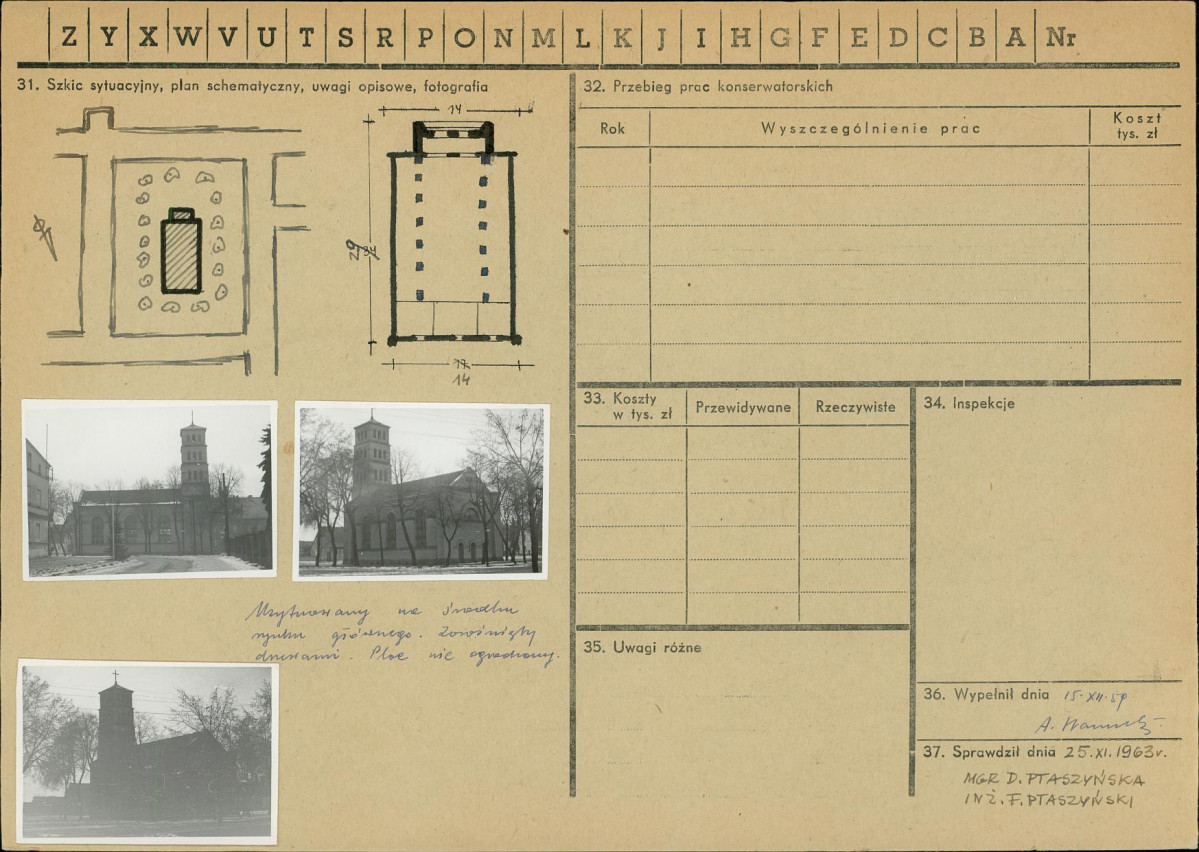 Z Y X W V U T S R P O N M L K J I H G F E D C B A Nr
31. Szkic sytuacyjny, plan schematyczny, uwagi opisowe, fotografia
14
29
14
Usytuowany na środku
rynku głównego. Zarośnięty
drzewami. Plac nie ogrodzony.
32. Przebieg prac konserwatorskich
Rok
Wyszczególnienie prac
Koszt
tys. zł
33. Koszty
w tys. zł
Przewidywane
Rzeczywiste
34. Inspekcje
35. Uwagi różne
36. Wypełnił dnia 15.XII.59
A.
37. Sprawdził dnia 25.XI.1963r.
MGR D. PTASZYŃSKA
INŻ. F. PTASZYŃSKI